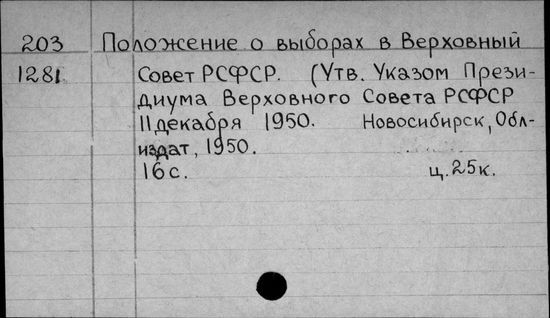 203 Положение о выборах в Верховный
1281 Совет РСФСР. (Утв. Указом Прези-
диума Верховного Совета РСФСР
11 декабря 1950. Новосибирск, Обл-
издат, 1950.
16 с. ц. 25 к.